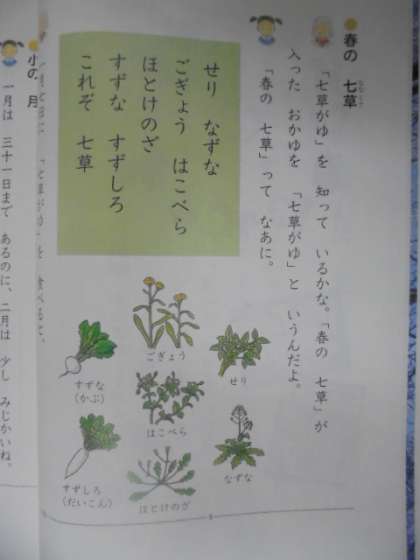 春の 七草
ななくさ
「七草がゆ」を 知って いるかな。「春の 七草」が
入った おかゆを 「七草がゆ」と いうんだよ。
「春の 七草」って なあに。
せり なずな
ごぎょう はこべら
ほとけのざ
すずな すずしろ
これぞ 七草
ごぎょう
せり
すずな
(かぶ)
はこべら
なずな
すずしろ
(だいこん)
ほとけのざ
を 食べると、
小の 月
一月は 三十一日まで あるのに、二月は 少し みじかいね。